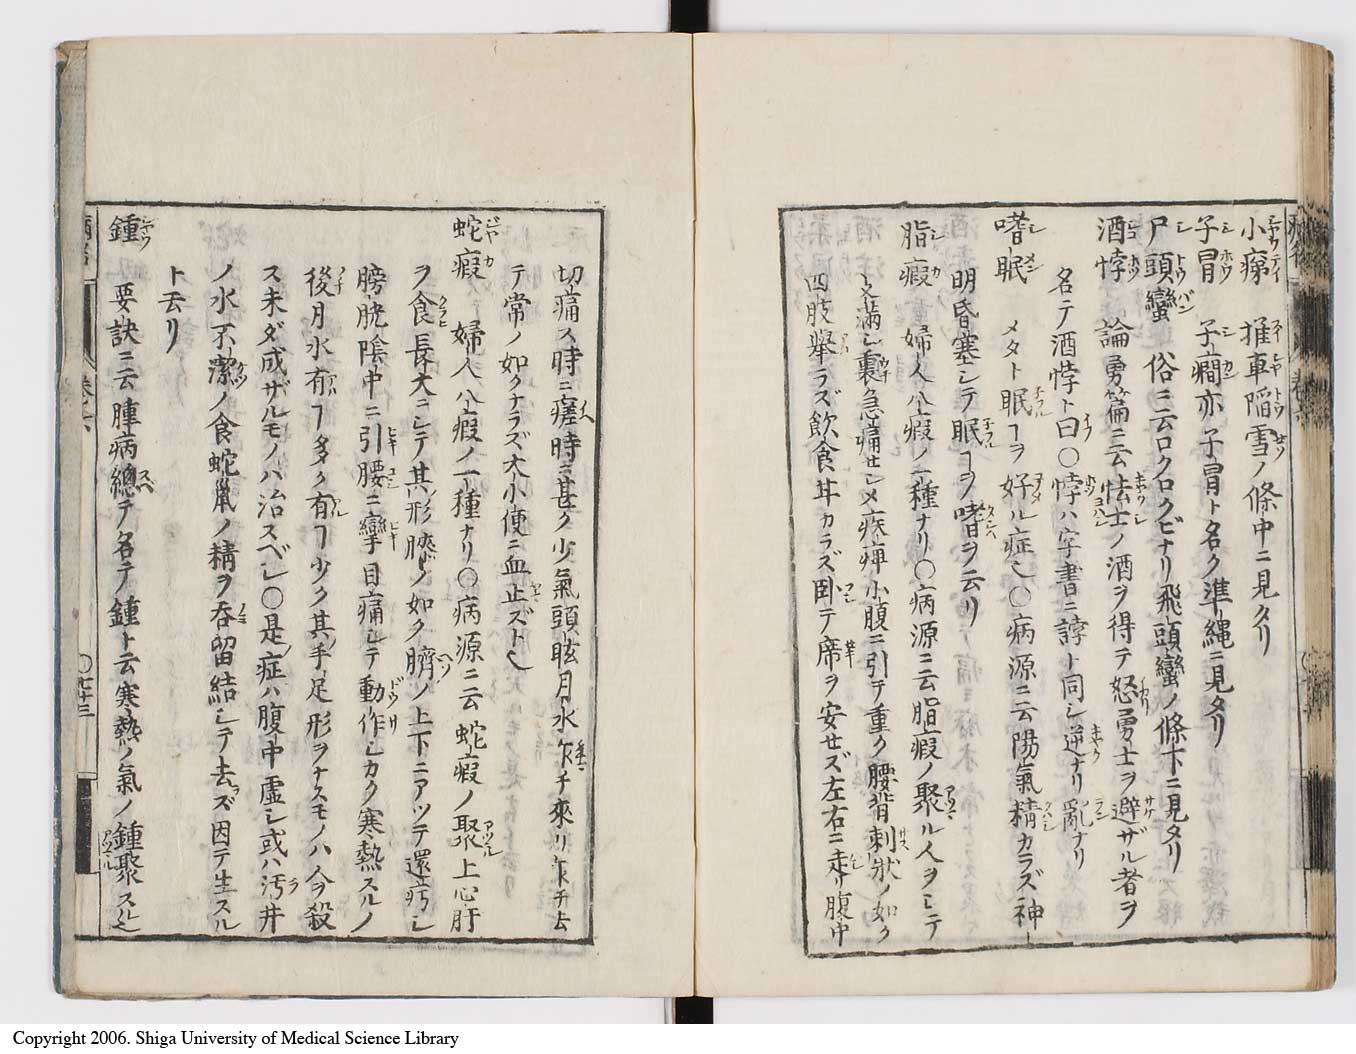 小𤻤 推車陷雪ノ條中ニ見タリ
子冒 子癇亦子冒ト名ク準縄ニ見タリ
尸頭蠻 俗ニ云ロクロクビナリ飛頭蠻ノ條下ニ見タリ
酒悖 論勇篇ニ云怯士ノ酒ヲ得テ怒勇士ヲ避ザル者ヲ
名テ酒悖ト曰〇悖ハ字書ニ誖ト同シ逆ナリ亂ナリ
嗜眠 メタト眠ヿヲ好ル症也〇病源ニ云陽氣精カラズ神
明昏塞シテ眠ヿヲ嗜ヲ云リ
脂瘕 婦人八瘕ノ一種ナリ〇病源ニ云脂瘕ノ聚ル人ヲシテ
支滿シ裏急痛セシメ疾痺小腹ニ引テ重ク腰背刺狀ノ如ク
四肢舉ラズ飲食甘カラズ卧テ席ヲ安セズ左右ニ走リ腹中
切痛ス時ニ瘥時ニ甚ク少氣頭眩月水乍チ來リ乍チ去
テ常ノ如クナラズ大小便ニ血止ズト也
蛇瘕 婦人八瘕ノ一種ナリ〇病源ニ云蛇瘕ノ聚上心肝
ヲ食長大ニシテ其形臁ノ如ク臍ノ上下ニアツテ還疞シ
膀胱陰中ニ引腰ニ攣目痛シテ動作シカタク寒熱スルノ
後月水有ヿ多ク有ヿ少ク其手足形ヲナスモノハ人ヲ殺
ス未ダ成サザルモノハ治スベシ〇是症ハ腹中虚シ或ハ汚井
ノ水不潔ノ食蛇鼠ノ精ヲ呑留結シテ去ズ因テ生スル
ト云リ
鍾 要訣ニ云腫病總テ名テ鍾ト云寒熱ノ氣ノ鍾聚スル也
〇七十三
Copyright 2006. Shiga University of Medical Science Library